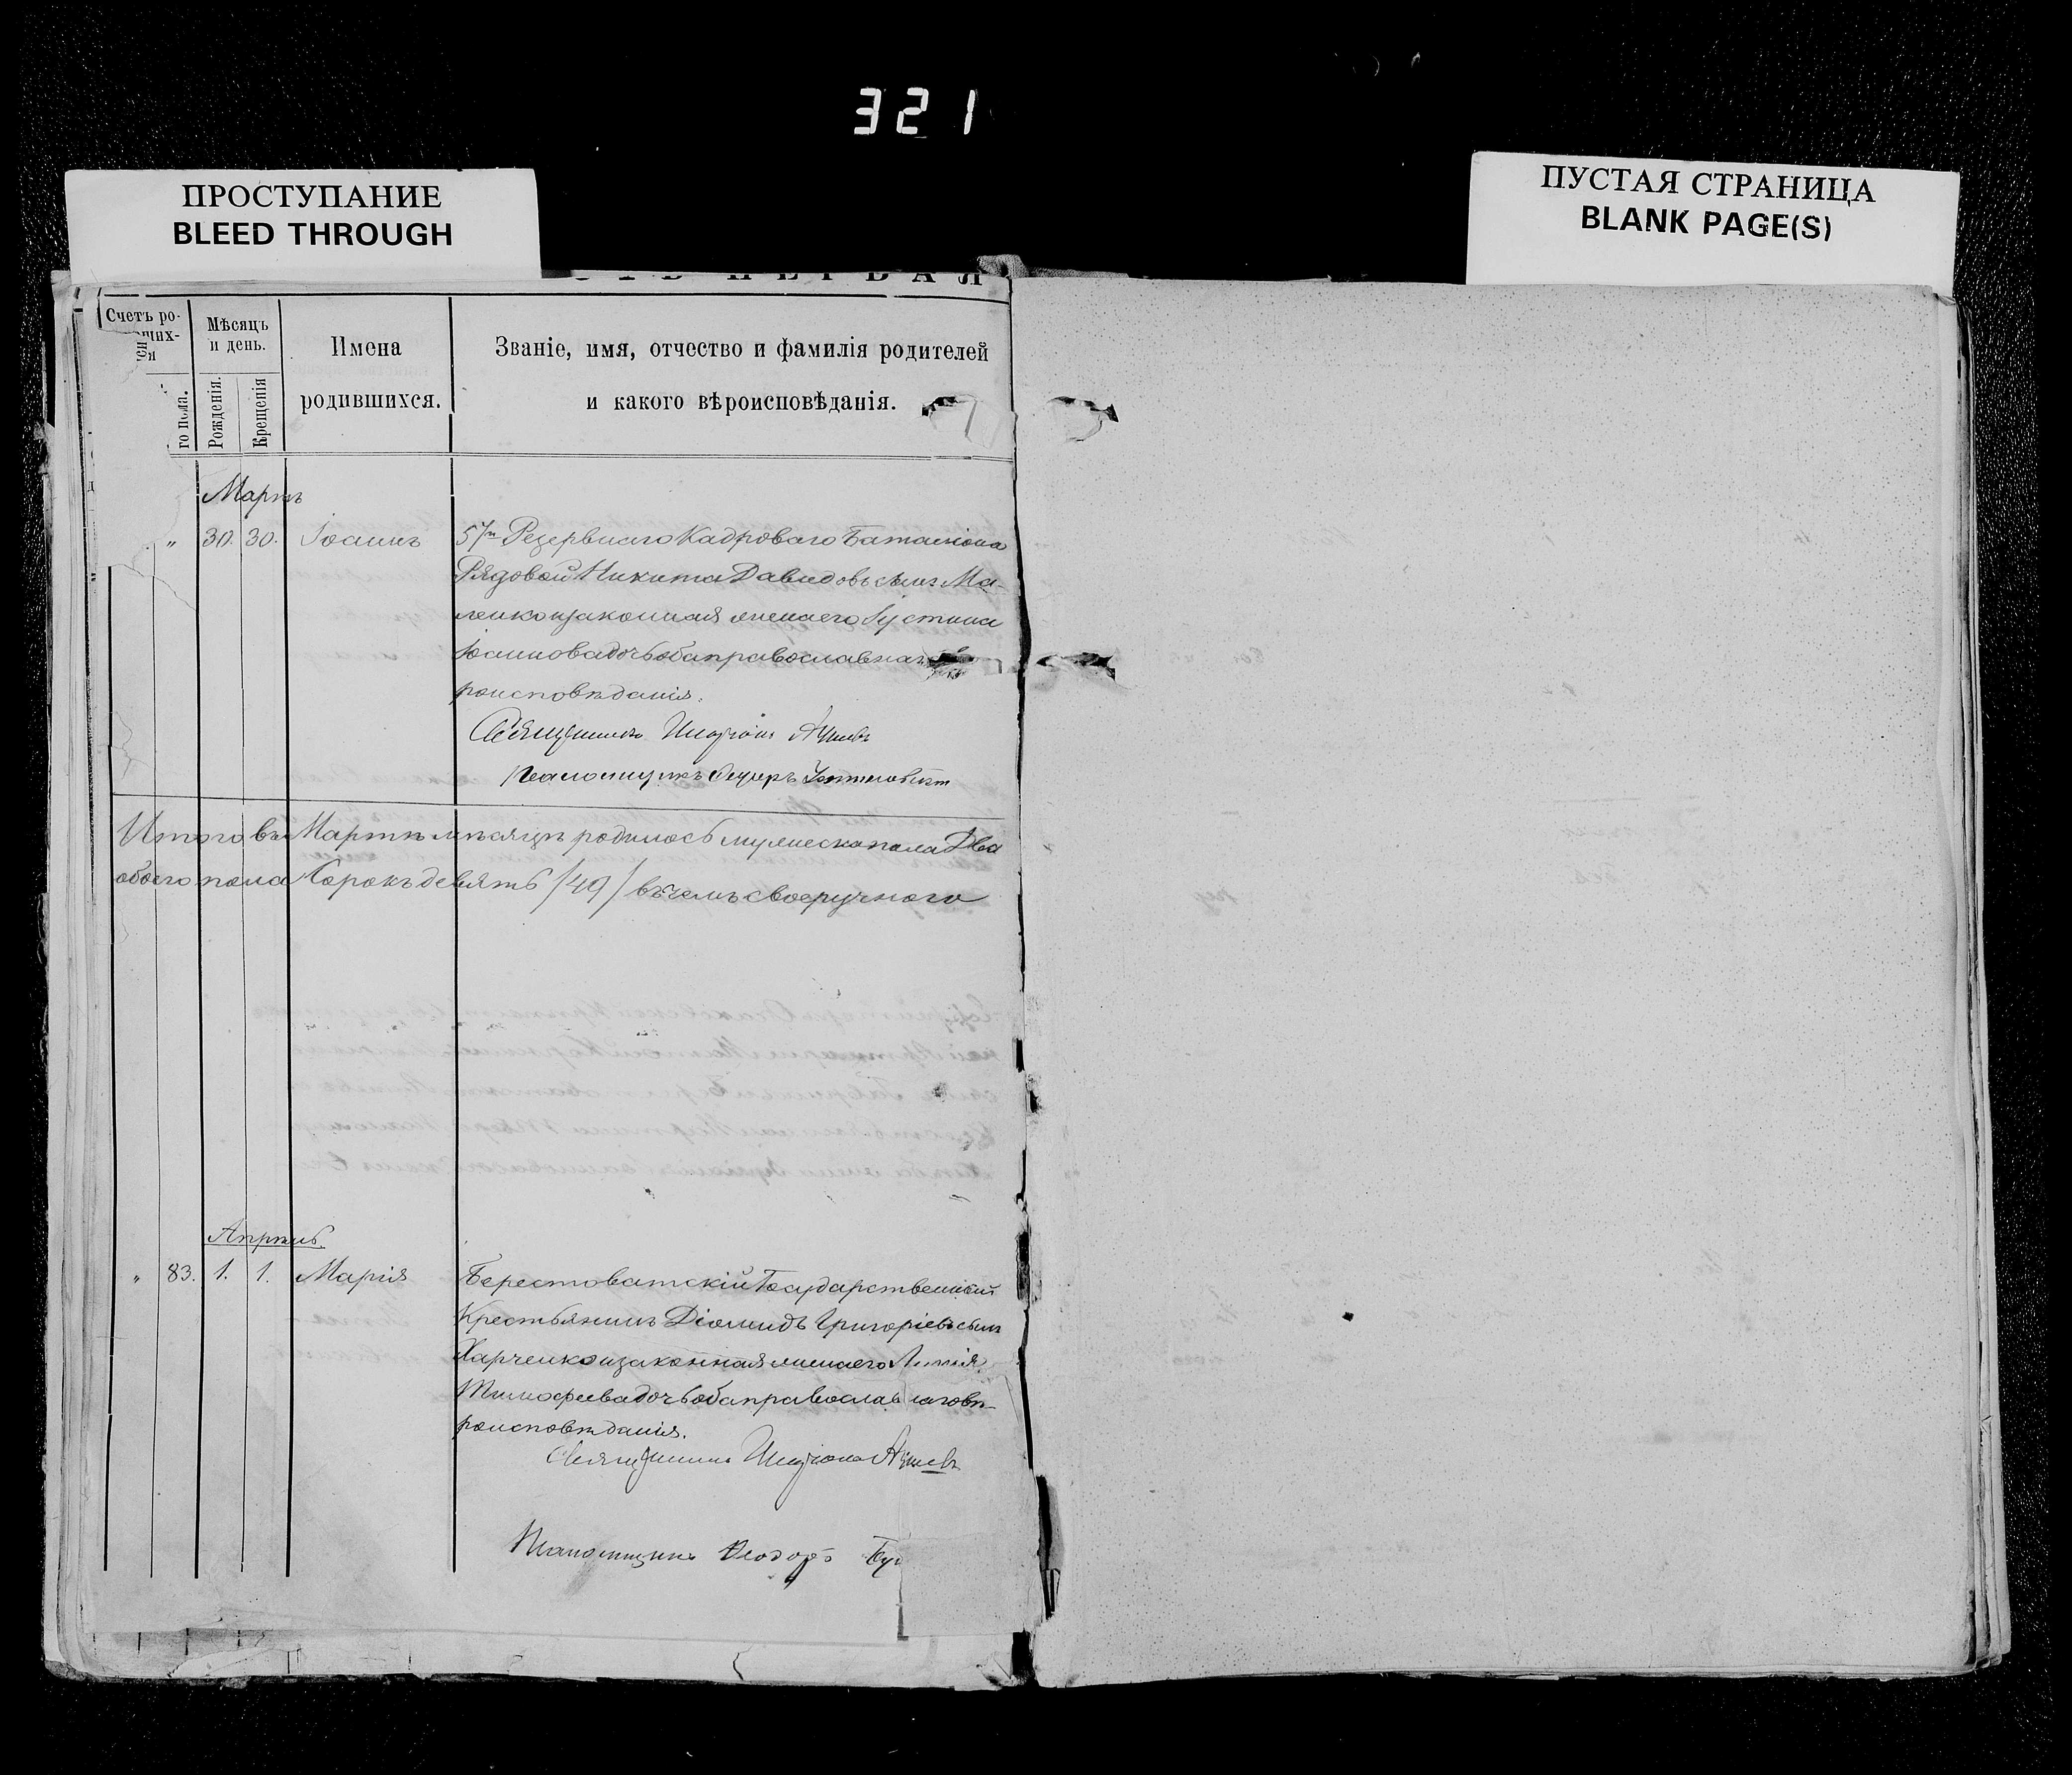 321
ПРОСТУПАНИЕ
BLEED THROUGH
ПУСТАЯ СТРАНИЦА
BLANK PAGE(S)
ПЕРВАЯ
Счетъ ро-
Мѣсяцъ
и день.
Имена
родившихся.
Званіе, имя, отчество и фамилія родителей
и какого вѣроисповѣданія.
го пола.
Рожденія.
Крещенія
Мартъ
" 30. 30. Іоаннъ
57го Резервнаго Кадроваго Баталіона
Рядовой Никита Давидовъ сынъ Ма-
ленко и законная жена его Іустина
Іоаннова дочь оба православнаго
роисповѣданія.
Священникъ
Псаломщикъ
Итого въ Мартѣ мѣсяцѣ родилось мужеска пола Два
обоего пола Сорокъ девять /49/ въ чемъ своеручного
Апрѣль.
" 83. 1. 1. Марія
Берестоватскій Государственный
Крестьянинъ Діомидъ Григоріевъ сынъ
Харченко и законная жена его
Тимофеева дочь оба православнаго вѣ-
роисповѣданія.
Священникъ
Псаломщикъ Ѳеодоръ